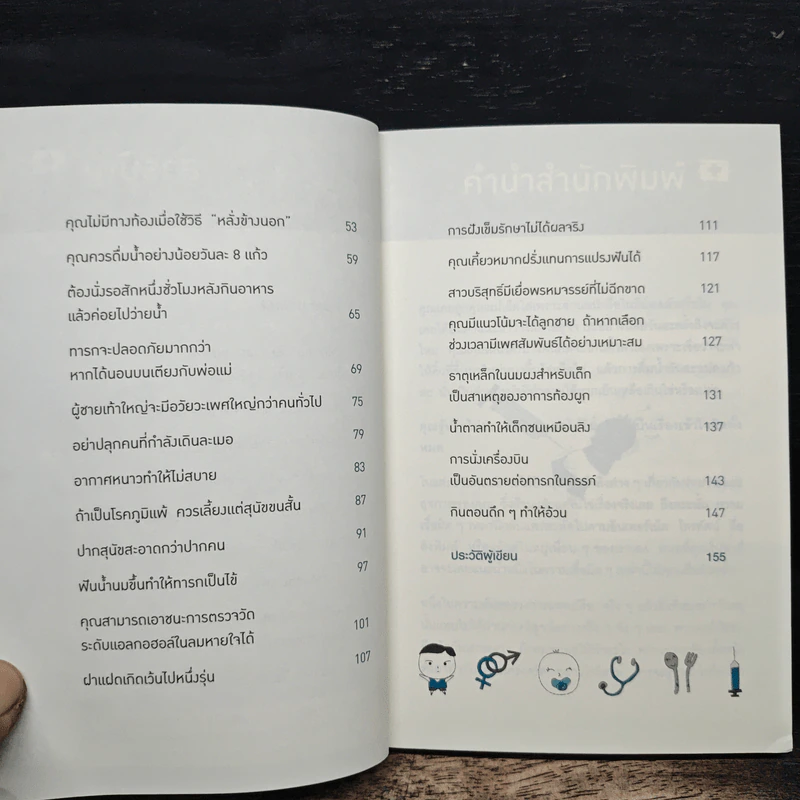 คุณไม่มีทางท้องเมื่อใช้วิธี “หลั่งข้างนอก” 53
คุณควรดื่มน้ำอย่างน้อยวันละ 8 แก้ว 59
ต้องนั่งรอสักหนึ่งชั่วโมงหลังกินอาหาร
แล้วค่อยไปว่ายน้ำ 65
ทารกจะปลอดภัยมากกว่า
หากได้นอนบนเตียงกับพ่อแม่ 69
ผู้ชายเท้าใหญ่จะมีอวัยวะเพศใหญ่กว่าคนทั่วไป 75
อย่าปลุกคนที่กำลังเดินละเมอ 79
อากาศหนาวทำให้ไม่สบาย 83
ถ้าเป็นโรคภูมิแพ้ ควรเลี้ยงแต่สุนัขขนสั้น 87
ปากสุนัขสะอาดกว่าปากคน 91
ฟันน้ำนมขึ้นทำให้ทารกเป็นไข้ 97
คุณสามารถเอาชนะการตรวจวัด
ระดับแอลกอฮอล์ในลมหายใจได้ 101
ฝาแฝดเกิดเว้นไปหนึ่งรุ่น 107
คำนำสำนักพิมพ์
การฝังเข็มรักษาไม่ได้ผลจริง 111
คุณเคี้ยวหมากฝรั่งแทนการแปรงฟันได้ 117
สาวบริสุทธิ์มีเยื่อพรหมจรรย์ที่ไม่ฉีกขาด 121
คุณมีแนวโน้มจะได้ลูกชาย ถ้าหากเลือก
ช่วงเวลามีเพศสัมพันธ์ได้อย่างเหมาะสม 127
ธาตุเหล็กในนมผงสำหรับเด็ก
เป็นสาเหตุของอาการท้องผูก 131
น้ำตาลทำให้เด็กซนเหมือนลิง 137
การนั่งเครื่องบิน
เป็นอันตรายต่อทารกในครรภ์ 143
กินตอนดึก ๆ ทำให้อ้วน 147
ประวัติผู้เขียน 155